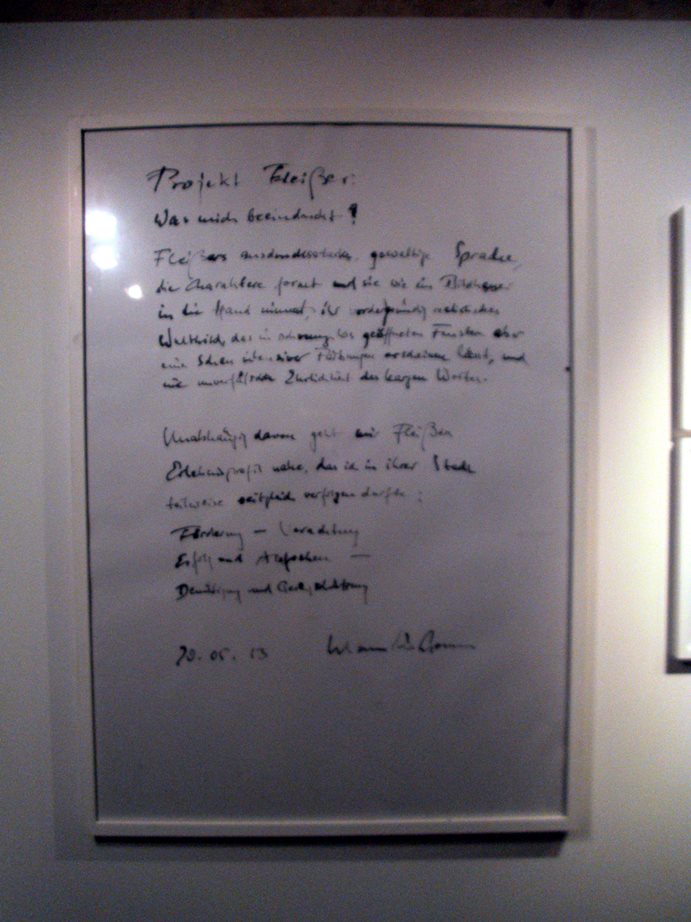 Projekt Fleißer:
Was mich beeindruckt?
Fleißers ausdrucksstarke, gewaltige Sprache,
die Charaktere formt und sie wie ein Bildhauer
in die Hand nimmt, ihr vordergründig
Weltbild, das in geöffneten Fenstern aber
eine intensiver erscheinen lässt, und
eine Ehrlichkeit des kargen Wortes.
Unabhängig davon geht mir Fleißers
nahe, das ich in ihrer Stadt
teilweise zeitgleich verfolgen durfte:
Förderung – Verachtung
Erfolg und –
Demütigung und
20.05.13